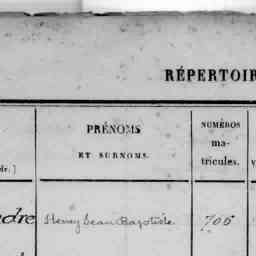 RÉPERTOIR
PRÉNOMS
ET SURNOMS.
NUMÉROS
ma-
tricules.
dre Henry Jean Baptiste 705